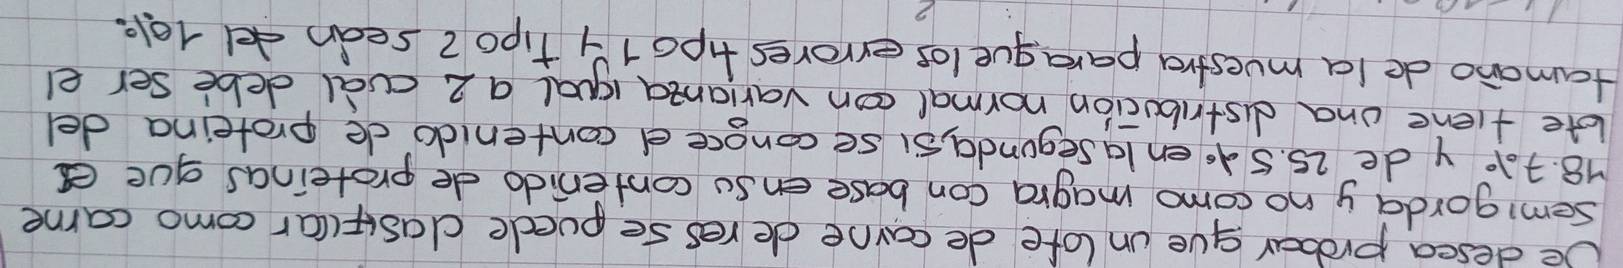 Se desea probar que un lote de carne de res se puede clasificar como carne
semigorda y no como magra con base en su contenido de proteínas que es
18.7% y de 25.5% en la segunda, si se conoce el contenido de proteina del
lote tiene una distribución normal con varianza igual a 2 cuál debe ser el
tamaño de la muestra para que los errores tipo 1 y tipo 2 sean del 10%